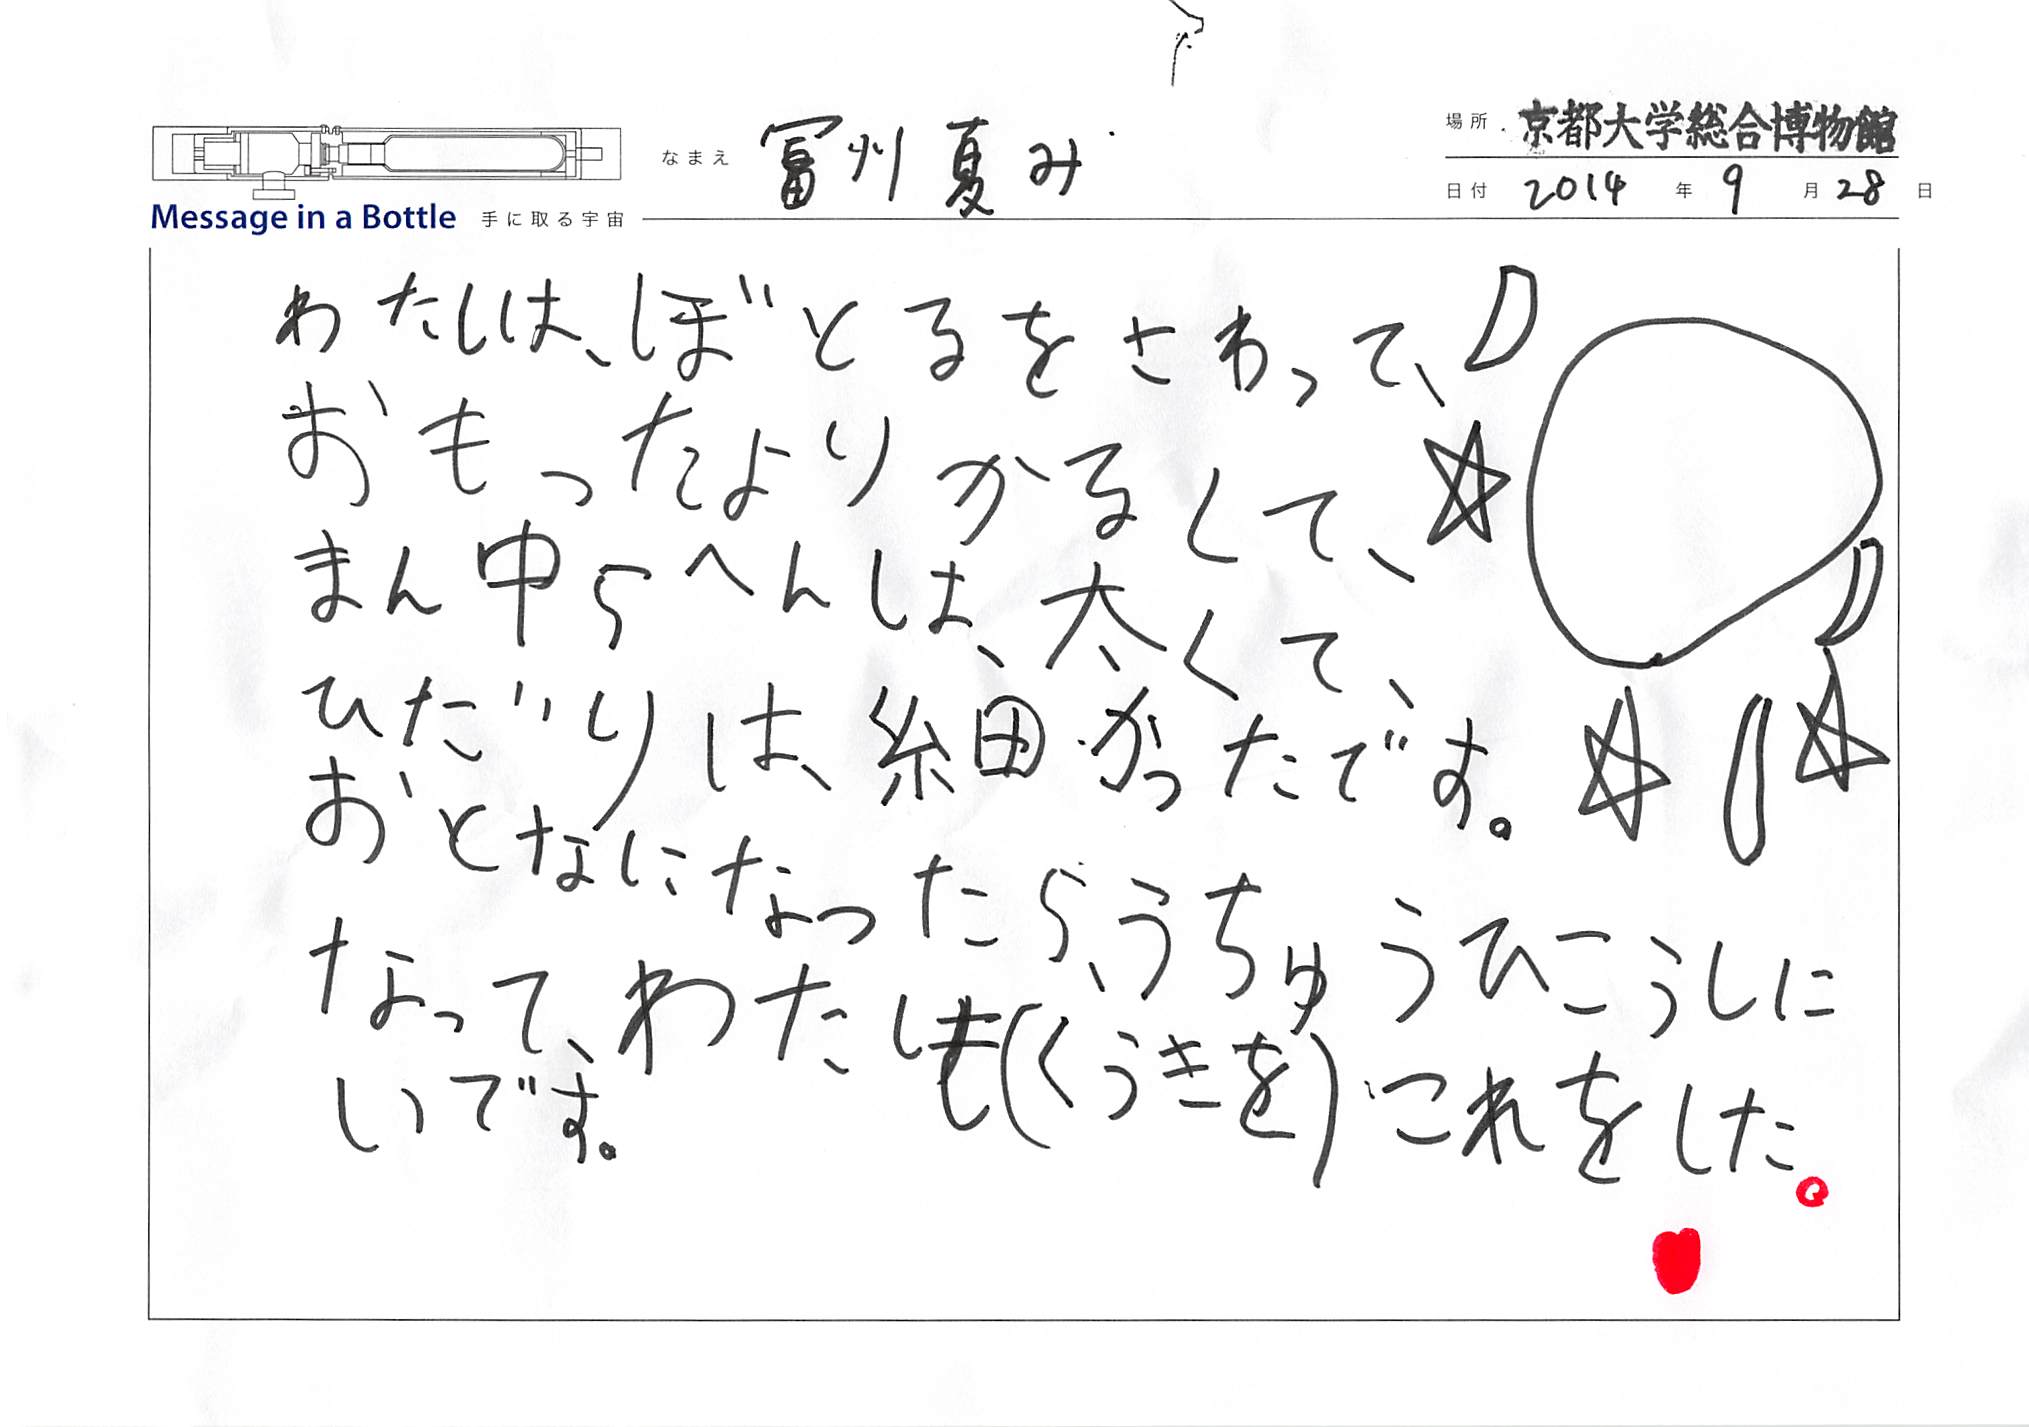 場所 京都大学総合博物館
なまえ 冨州夏み
日付 2014年9月28日
Message in a Bottle 手に取る宇宙
わたしは、ぼとるをさわって、
おもったよりかるくて、
まん中らへんは、太くて、
ひだりは、細かったです。
おとなになったら、うちゅうひこうしに
なって、わたしも(くうきを)これをした。
いです。